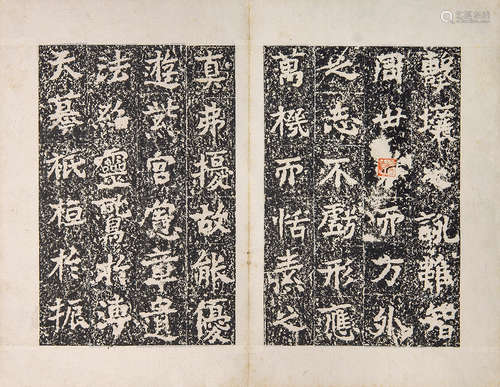 擊壤之訊雖智
周世而方外
之志不虧形應
萬機而恬素之
真弗擾故能優
遊紫宮憲章遺
法紹靈鷲於溥
天摹祇桓於振